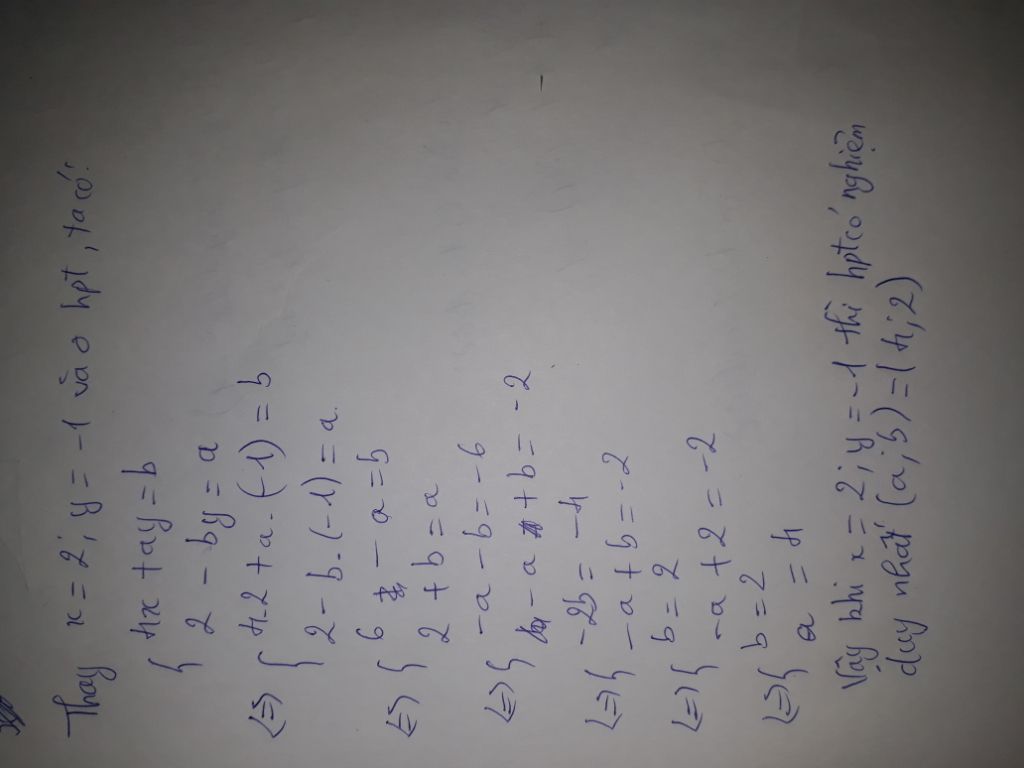 Thay x = 2; y = -1 vào hpt, ta có:
{ 4x + ay = b
2 - by = a
<=> { 4.2 + a.(-1) = b
2 - b.(-1) = a
<=> { 6 - a = b
2 + b = a
<=> { -a - b = -6
- a + b = -2
<=> { -2b = -4
-a + b = -2
<=> { b = 2
-a + 2 = -2
<=> { b = 2
a = 4
Vậy khi x = 2; y = -1 thì hpt có nghiệm
duy nhất (a; b) = (4; 2)